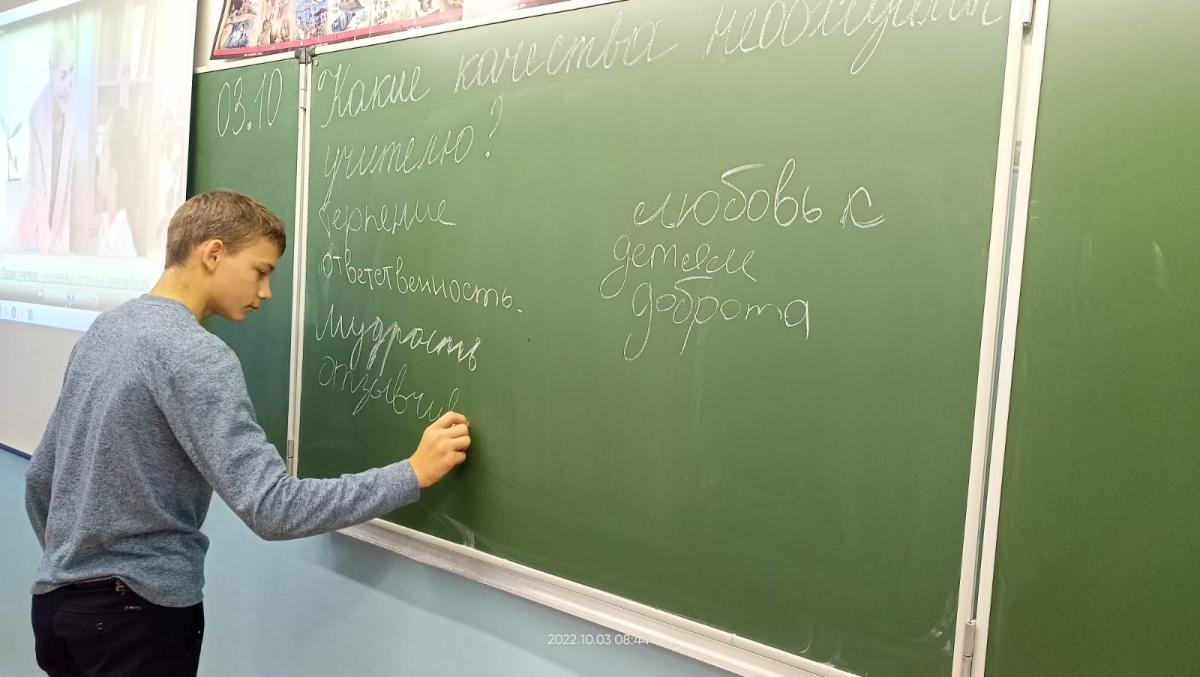 03.10
Какие качества необходимы
учителю?
терпение
ответственность.
мудрость
отзывчив
любовь к
детям
доброта
2022.10.03 08:44